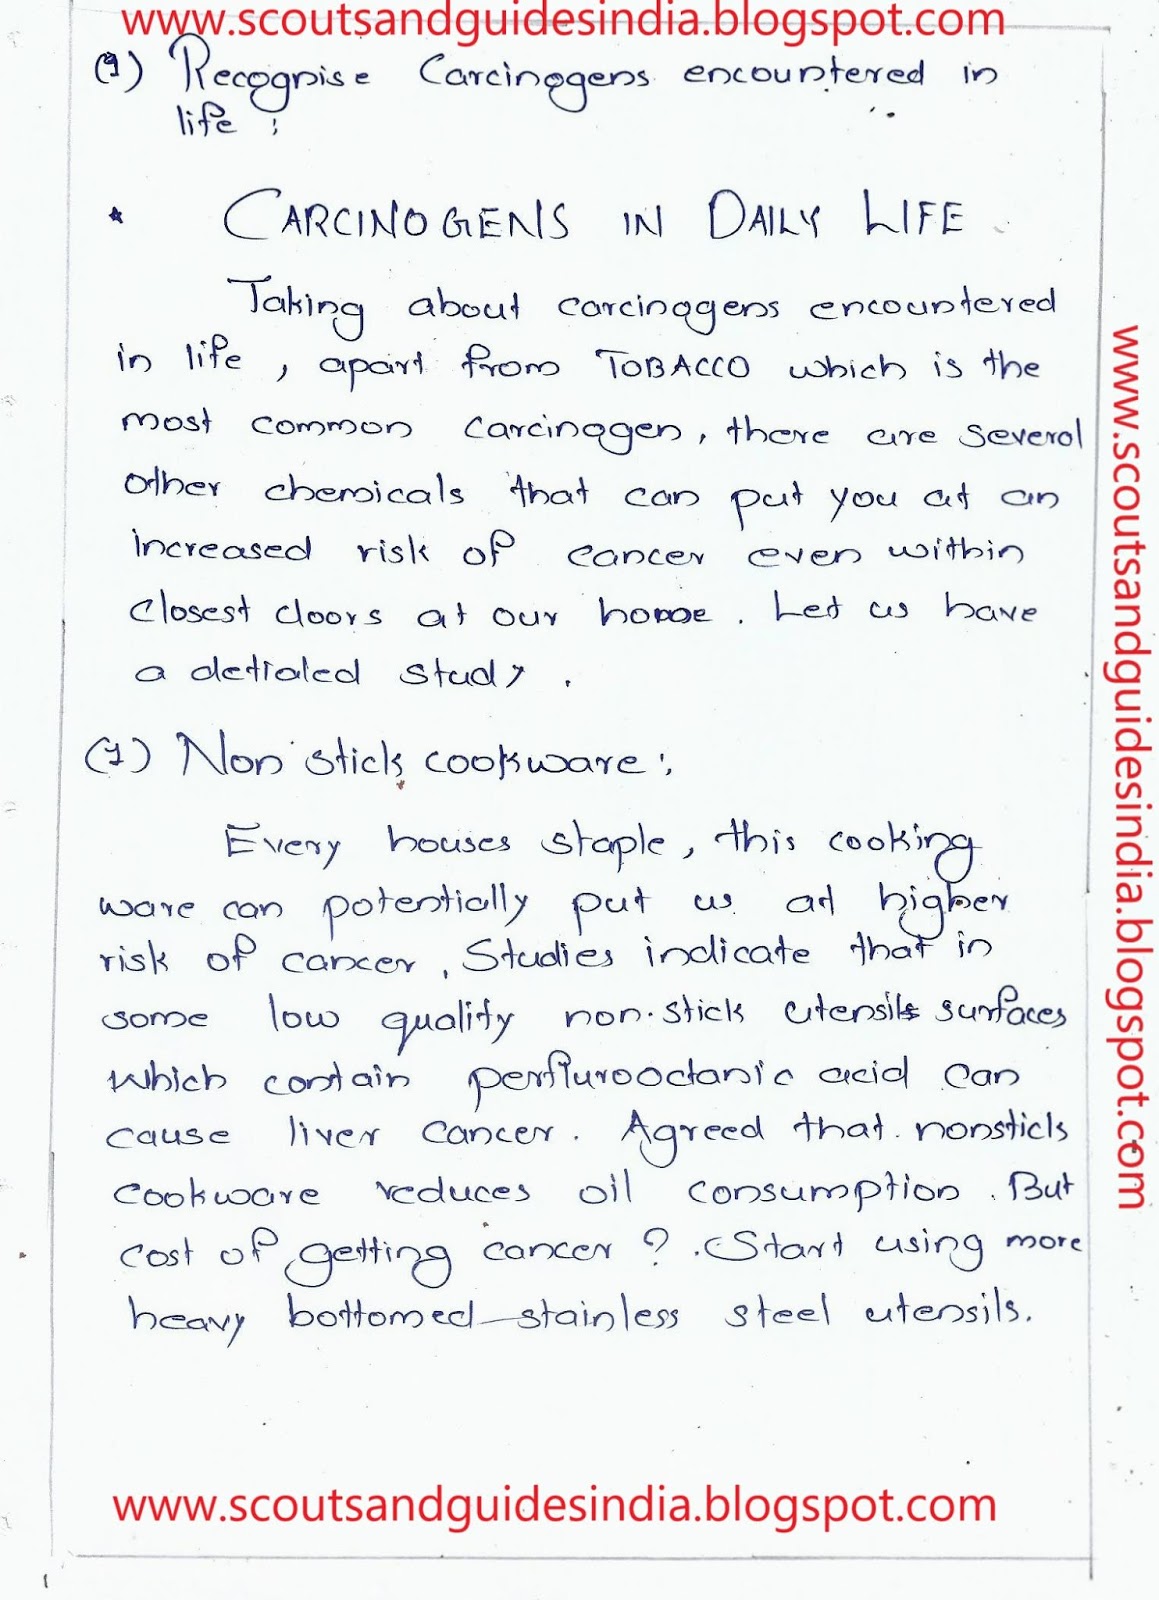 www.scoutsandguidesindia.blogspot.com
(9) Recognise Carcinogens encountered in
life :
* CARCINOGENS IN DAILY LIFE
Taking about carcinogens encountered
in life, apart from TOBACCO which is the
most common carcinogen, there are several
other chemicals that can put you at an
increased risk of cancer even within
closest doors at our home. Let us have
a detialed study.
(1) Non stick cookware :
Every houses staple, this cooking
ware can potentially put us at higher
risk of cancer. Studies indicate that in
some low quality non-stick utensils surfaces
which contain perflurooctanic acid can
cause liver cancer. Agreed that nonstick
cookware reduces oil consumption. But
cost of getting cancer ? Start using more
heavy bottomed stainless steel utensils.
www.scoutsandguidesindia.blogspot.com
www.scoutsandguidesindia.blogspot.com